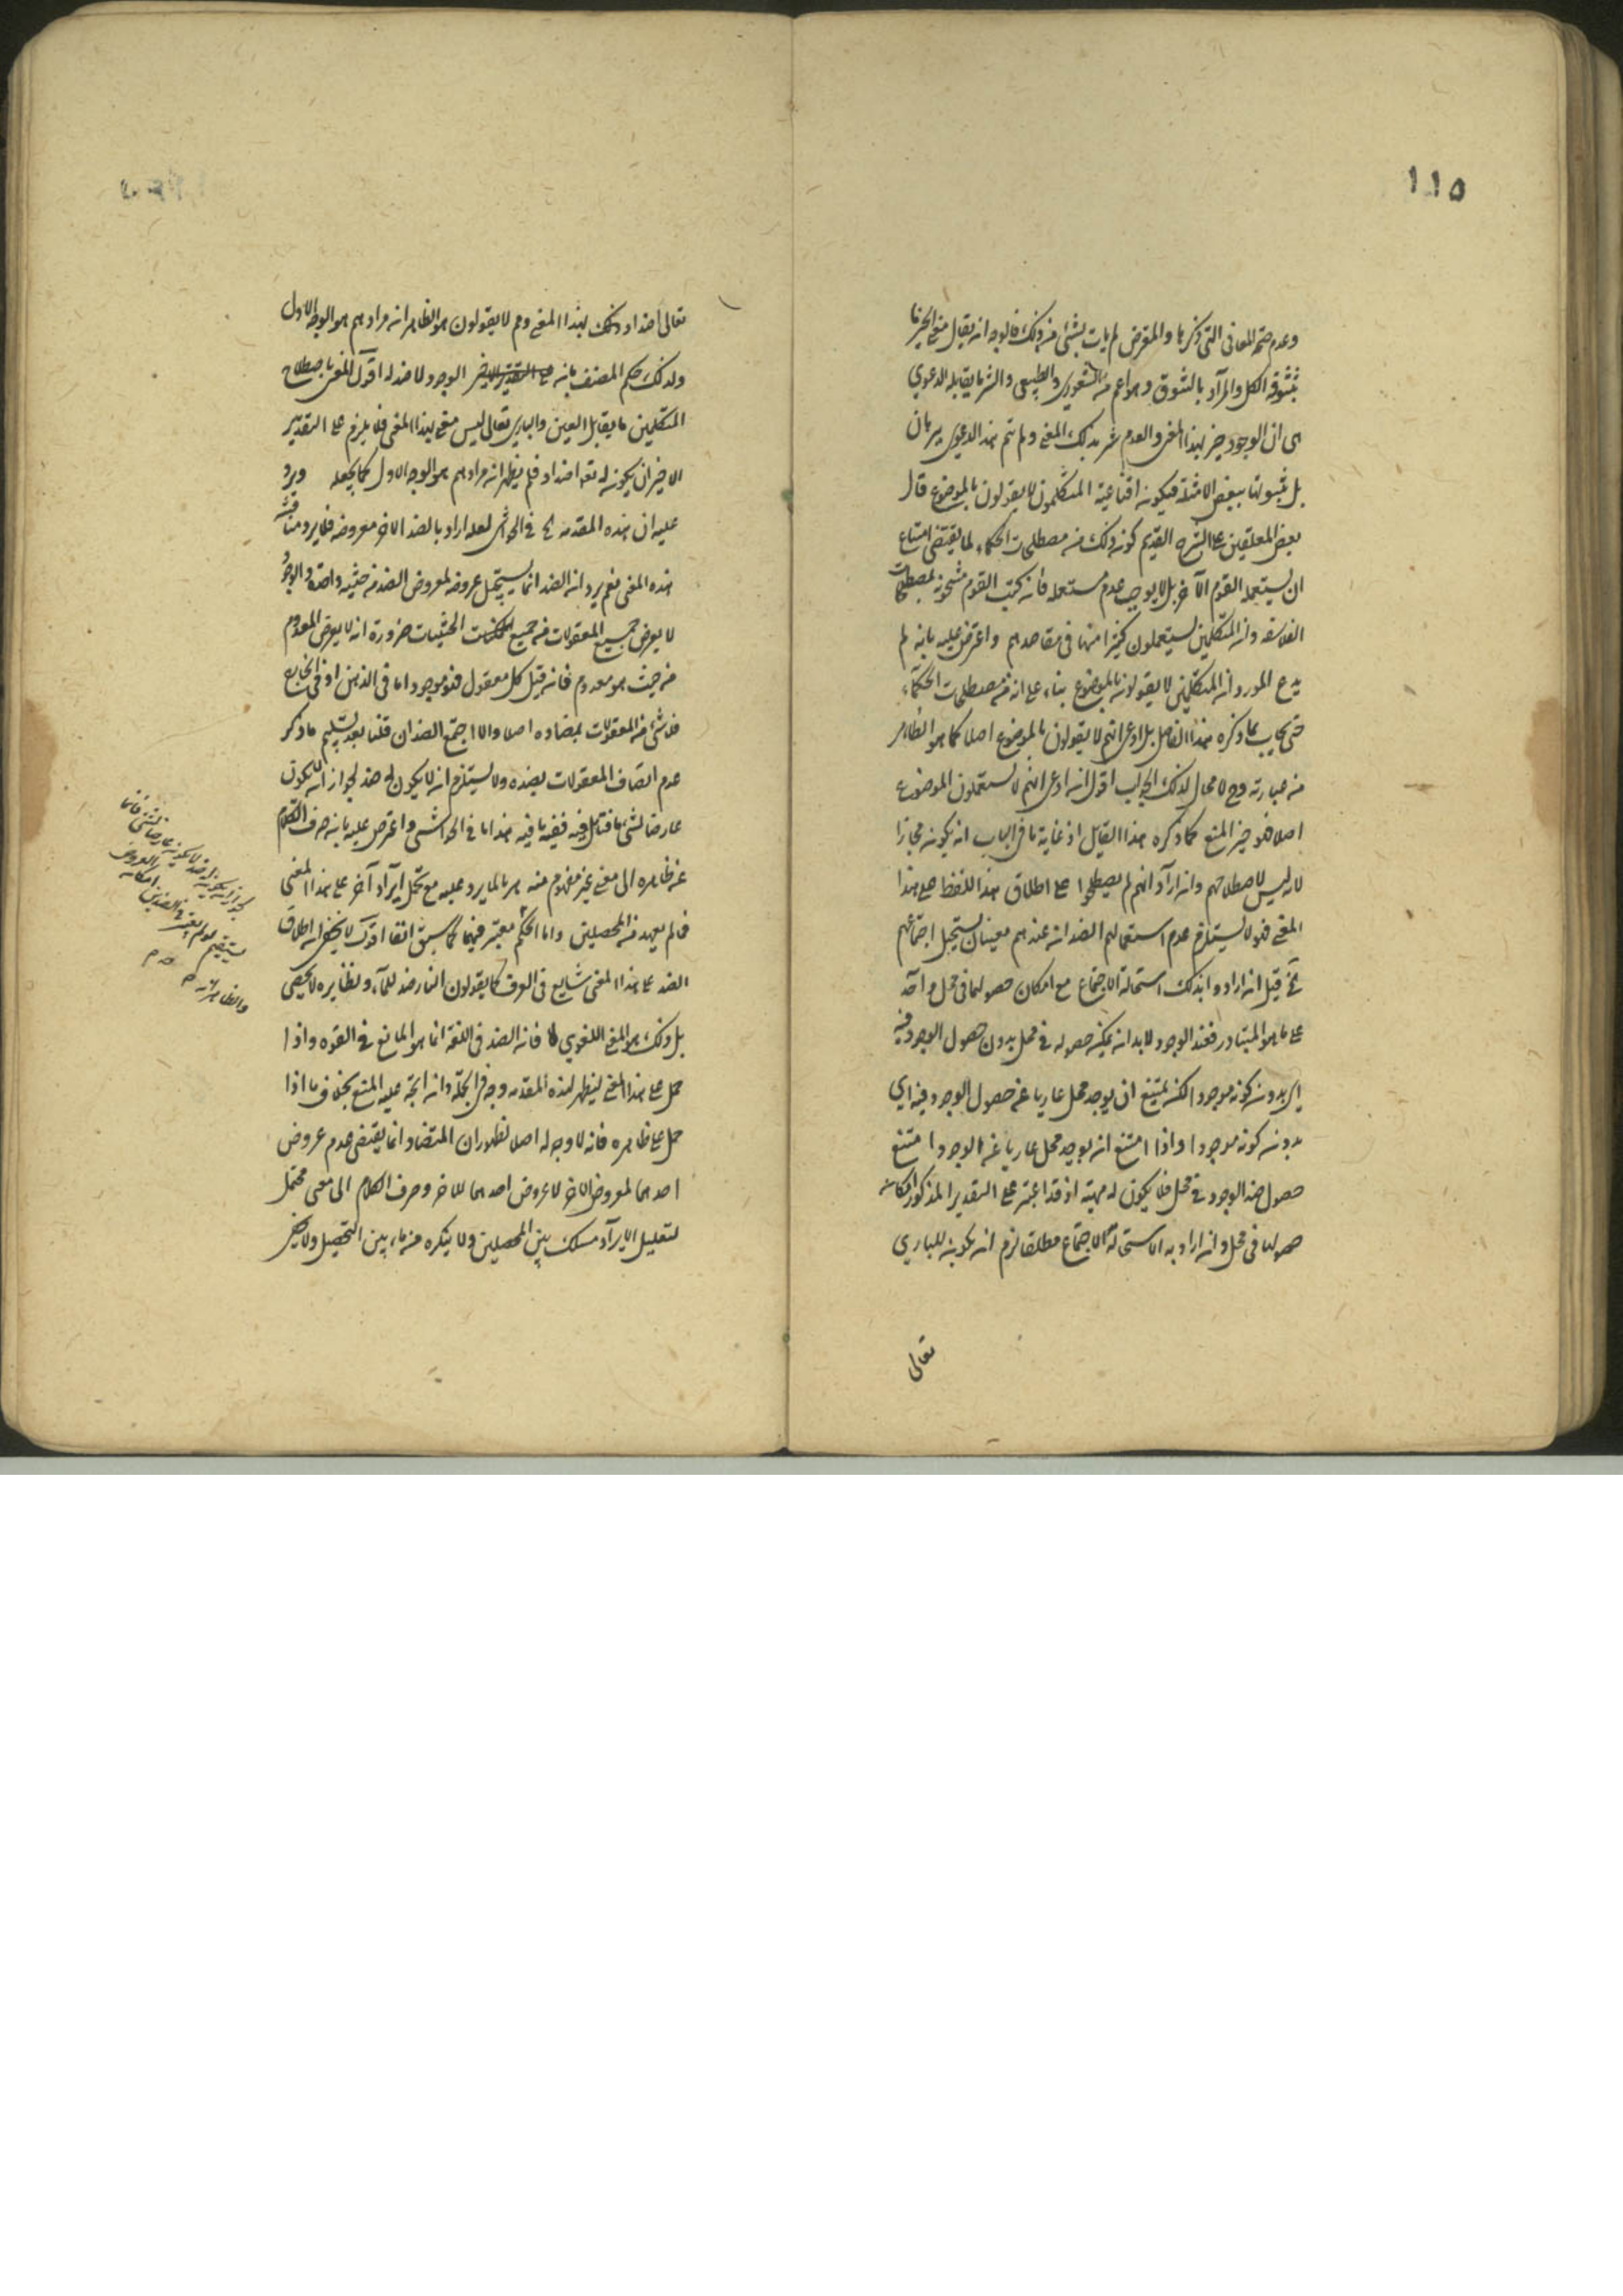 ١١٥
وعدم صحة المعانى التى ذكرها والمعترض لم يأت بشئ من ذلك فالوجه ان يقال معنى الخير ما
يتشوقه الكل والمراد بالتشوق وهو اعم من الشعورى والطبيعى والشر ما يقابله الدعوى
هى ان الوجود خير بهذا المعنى والعدم شر بذلك المعنى ولم يتم هذا الدعوى ببرهان
بل بثبوتها ببعض الامثلة فيكون اقناعية المتكلمون لا يقولون بالموضوع قال
بعض المعلقين على الشرح القديم كون ذلك من مصطلحات الحكماء لما يقتضى امتناع
ان يستعمله القوم الآخر بل لا يوجب عدم مستعمله فان كتب القوم مشحونة بمصطلحات
الفلاسفة وان المتكلمين يستعملون كثيرا منها فى مقاصدهم واعترض عليه بانه لم
يدع المورد ان المتكلمين لا يقولون بالموضوع بناء على انه من مصطلحات الحكماء
حتى يجاب بما ذكره هذا الفاضل بل ادعى انهم لا يقولون بالموضوع اصلا كما هو الظاهر
من عبارته وح لا مجال لذلك الجواب اقول انه ادعى انهم لا يستعملون الموضوع
اصلا فهو حيز المنع كما ذكره هذا القايل اذ غاية ما فى الباب ان يكون مجازا
لانه ليس لاصطلاحهم وان اراد انهم لم يصطلحوا على اطلاق هذا اللفظ على هذا
المعنى فهو لا يستلزم عدم استعمالهم الضدان عندهم معنيان يستحيل اجتماعهم
قيل ان ارادوا بذلك استحالة الاجتماع مع امكان حصولهما فى محل واحد
على ما هو المتبادر فضد الوجود لابد ان يمكن حصوله فى محل بدون حصول الوجود فيه
اى بدون كونه موجودا لكنه يمتنع ان يوجد محل عاريا عن حصول الوجود فيه اى
بدون كونه موجودا واذا امتنع ان يوجد محل عاريا عن الوجود امتنع
حصول ضد الوجود فى محل فلا يكون له مهية اذ قد اعتبر على التقدير المذكور امكان
حصولها فى محل وان اراد به الاستحالة الاجتماع مطلقا لزم ان يكون للبارى
تعالى
تعالى اضداد وذلك بهذا المعنى وهم لا يقولون هو الظاهر ان مرادهم هو الوجه الاول
ولذلك حكم المصنف بانه على التقدير الاخير الوجود لا ضد له اقول المعنى باصطلاح
المتكلمين ما يقابل العين والبارى تعالى ليس معنى بهذا المعنى فلا يلزم على التقدير
الاخير ان يكون له تعه اضداد فلم يظهر ان مرادهم هو الوجه الاول كما يجعله ويرد
عليه ان هذه المقدمة فى الحواشى لعله اراد بالضد الاخر معروضه فلا يرد مناقشة
هذه المعنى نعم يرد ان الضد انما يستحيل عروضه لمعروض الضد من حيثية واحدة والوجود
لا يعرض جميع المعقولات من جميع الحيثيات ضرورة انه لا يعرض المعدوم
من حيث هو معدوم فانه قيل كل معقول فهو موجود اما فى الذهن او فى الخارج
فلا شئ من المعقولات بمضاده اصلا والا اجتمع الضدان قلنا بعد تسليم ما ذكر
عدم اتصاف المعقولات بضده ولا يستلزم ان لا يكون له ضد لجواز ان لا يكون
عارضا لشئ ما فتأمل فيه ففيه ما فيه هذا ما فى الحواشى واعترض عليه بانه صرف الكلام
عن ظاهره الى معنى غير مفهوم منه هربا لما يرد عليه مع تحمل ايراد آخر على هذا المعنى
فما لم يعهد من المحصلين واما الحكم معتبر فيهما كما سبق انفا اقول لا يخفى ان اطلاق
الضد على هذا المعنى شايع فى العرف كما يقولون النار ضد للماء ونظايره لا يحصى
بل ذلك هو المعنى اللغوى فان الضد فى اللغة انما هو المانع فى القوة واذا
حمل على هذا المعنى ليظهر لهذه المقدمة وجه فى الجملة وان اتجه عليه المنع بخلاف ما اذا
حمل على ظاهره فانه لا وجه له اصلا لظهور ان التضاد انما يقتضى عدم عروض
احدهما لمعروض الاخر لا عروض احدهما للاخر وصرف الكلام الى معنى محتمل
لتعليل الايراد مسلك بين المحصلين ولا ينكره من ماء بين التحصيل ولا يخفى